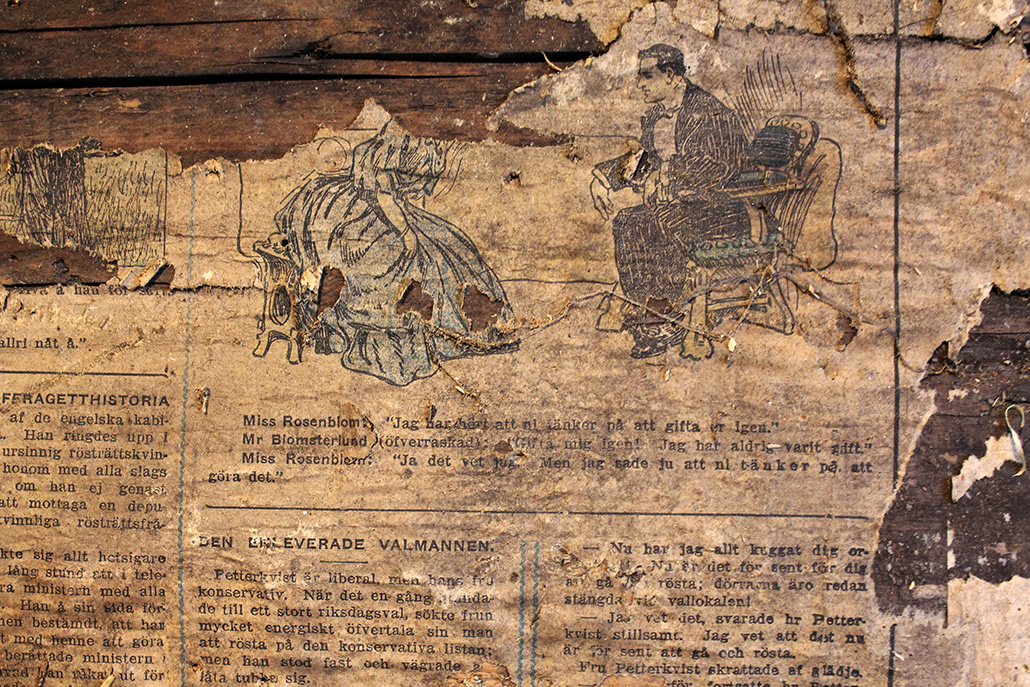 allri nåt å.”.
FFRAGETTHISTORIA
af de engelska kabi-
Han ringdes upp i
ursinnig rösträttskvin-
honom med alla slags
om han ej genast
att mottaga en depu
kvinnliga rösträttsfrå-
kte sig allt hetsigare
lång stund att i tele-
ra ministern med alla
Han å sin sida för-
nen bestämdt, att har
t med henne att göra
berättade ministern
ut för
Miss Rosenblom: “Jag har hört att ni tänker på att gifta er igen.”
Mr Blomsterlund (öfverraskad): “Gifta mig igen! Jag har aldrig varit gift.”
Miss Rosenblom: “Ja det vet jag. Men jag sade ju att ni tänker på att
göra det.”
DEN BELEVERADE VALMANNEN.
Petterkvist är liberal, men hans fru
konservativ. När det en gång stunda-
de till ett stort riksdagsval, sökte frun
mycket energiskt öfvertala sin man
att rösta på den konservativa listan;
men han stod fast och vägrade a
låta tubba sig.
— Nu har jag allt kuggat dig or-
Nu är det för sent för dig
att gå rösta; dörrarna äro redan
stängda vid vallokalen!
— Jag vet det, svarade hr Petter-
kvist stillsamt. Jag vet att det nu
är för sent att gå och rösta.
Fru Petterkvist skrattade af glädje.